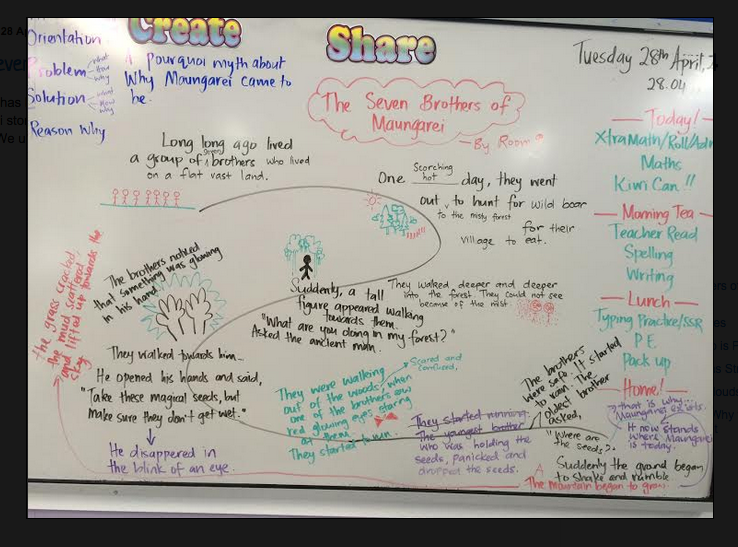 Create
Share
Orientation
Problem
what
How
why
Solution
what
How
why
Reason Why
A pourquoi myth about
Why Maungarei came to
be.
Tuesday 28th April,
28.04
The Seven Brothers of
Maungarei
- By Room
Long long ago lived
a group of brothers who lived
on a flat vast land.
One Scorching
hot day, they went
out to hunt for wild boar
to the misty forest
for their
village to eat.
They walked deeper and deeper
into the forest. They could not see
because of the mist
Suddenly, a tall
figure appeared walking
towards them.
"What are you doing in my forest?"
Asked the ancient man.
The brothers noticed
that something was glowing
in his hand
They walked towards him
He opened his hands and said,
"Take these magical seeds, but
make sure they don't get wet."
He disappeared in
the blink of an eye.
They were walking
out of the woods, when
one of the brothers saw
red glowing eyes staring
at them.
They started to run.
Scared and
confused,
They started running.
The youngest brother
who was holding the
seeds, panicked and
dropped the seeds.
The brothers
were safe. It started
to rain. The
oldest brother
asked,
"Where are
the seeds?"
Suddenly the ground began
to shake and rumble
The mountain began to grow
the grass cracked,
the mud scattered
and lifted up towards the
sky.
that is why
Maungarei exists.
It now stands
where Maungarei
is today.
Today!
XtraMath/Roll/
Maths
Kiwi Can!!
Morning Tea
Teacher Read
Spelling
Writing
Lunch
Typing Practice/SSR
P.E
Pack up
Home!